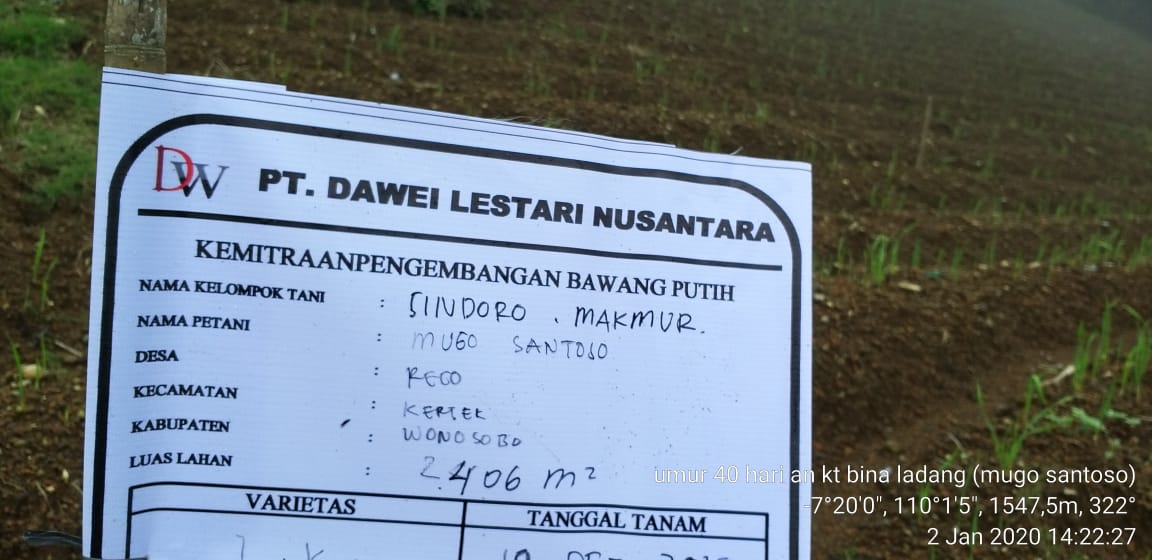 DW PT. DAWEI LESTARI NUSANTARA
KEMITRAANPENGEMBANGAN BAWANG PUTIH
NAMA KELOMPOK TANI : SINDORO . MAKMUR.
NAMA PETANI : MUGO SANTOSO
DESA : RECO
KECAMATAN : KERTEK
KABUPATEN : WONOSOBO
LUAS LAHAN : 2.406 m²
VARIETAS TANGGAL TANAM
umur 40 hari an kt bina ladang (mugo santoso)
-7°20'0", 110°1'5", 1547,5m, 322°
2 Jan 2020 14:22:27